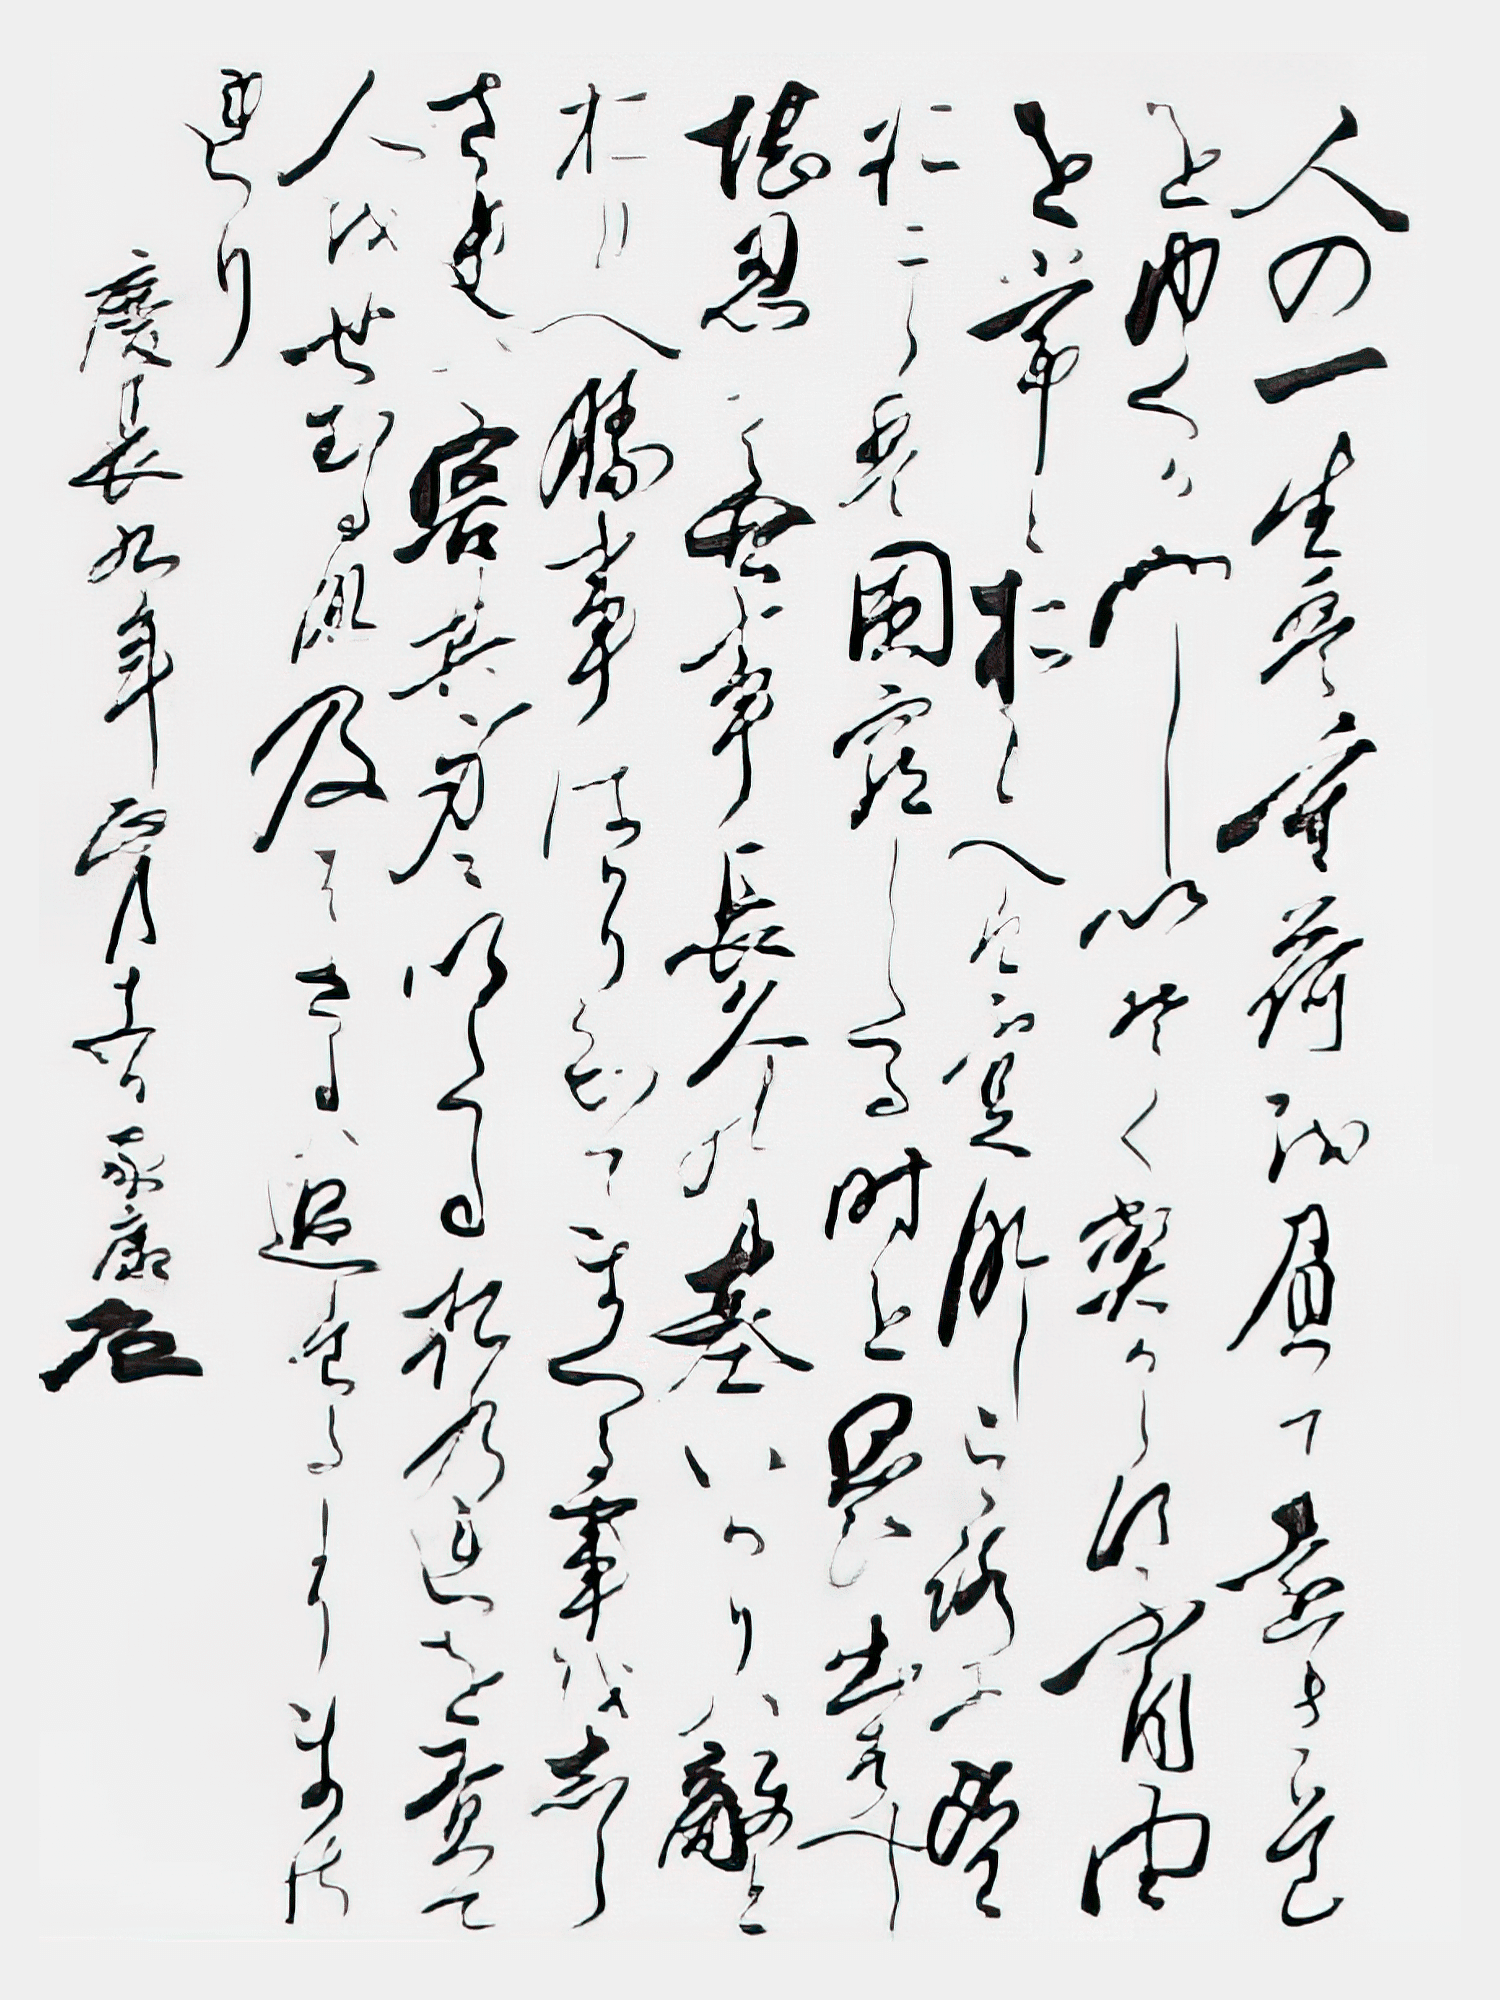 人の一生は重荷を負て遠き道
をゆくかことしいそくへからす不自由
を常とおもへは不足なしこころに望
おこらは困窮したる時を思ひ出すへし
堪忍は無事長久の基いかりハ敵と
おもへ勝事はかり知てまくる事をしら
されハ害其身にいたるおのれを責て
人をせむるな及はさるハ過たるよりまさ
れり
慶長九年正月十五日 家康